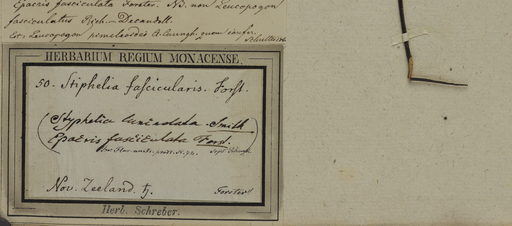 Epacris fasciculata Forster. NB. non Leucopogon
fasciculatus Rich.
Est: Leucopogon A. Cuningh. quem confer.
HERBARIUM REGIUM MONACENSE.
50. Stiphelia fascicularis. Forst.
(Styphelia lanceolata Smith
Epacris fasciculata Forst.)
Nov. Zeeland. ♄.
Forster
Herb. Schreber.